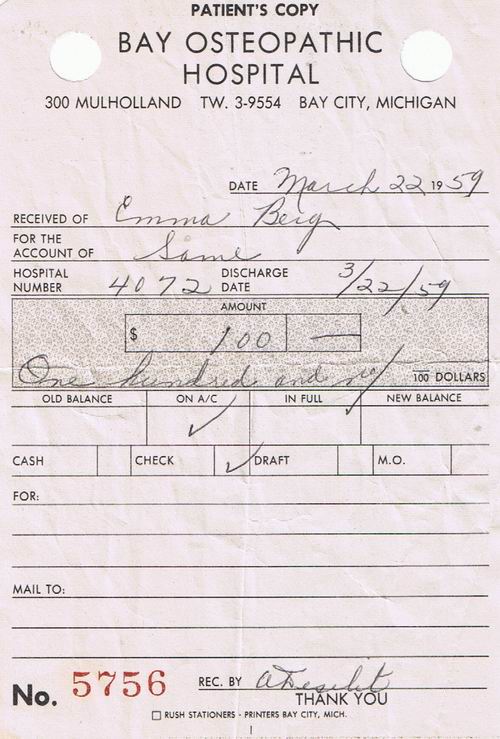 PATIENT'S COPY
BAY OSTEOPATHIC
HOSPITAL
300 MULHOLLAND TW. 3-9554 BAY CITY, MICHIGAN
DATE March 22 1959
RECEIVED OF Emma Berg
FOR THE
ACCOUNT OF Same
HOSPITAL NUMBER 4072 DISCHARGE DATE 3/22/59
AMOUNT
$ 100 —
One hundred and no/100 DOLLARS
OLD BALANCE ON A/C IN FULL NEW BALANCE
✓
CASH CHECK ✓ DRAFT M.O.
FOR:
MAIL TO:
No. 5756 REC. BY
THANK YOU
RUSH STATIONERS - PRINTERS BAY CITY, MICH.
1